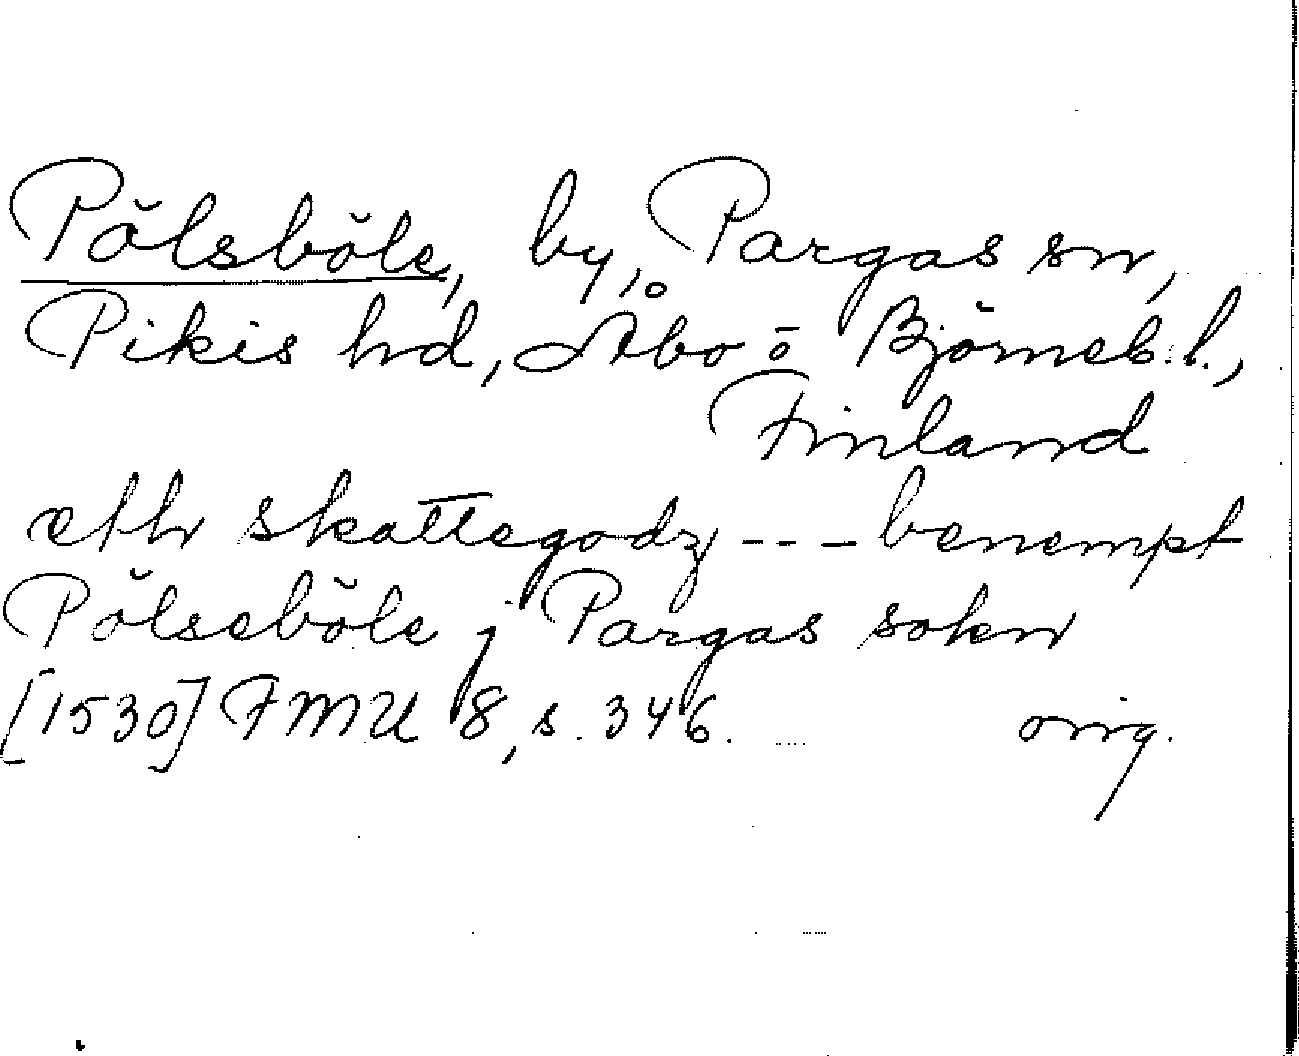 Pölsböle, by, Pargas sn,
Pikis hd, Åbo o Björneb. l.,
Finland
eth skattegodz --- benempt
Pölseböle j Pargas sokn
[1530] FMU 8, s. 346. orig.